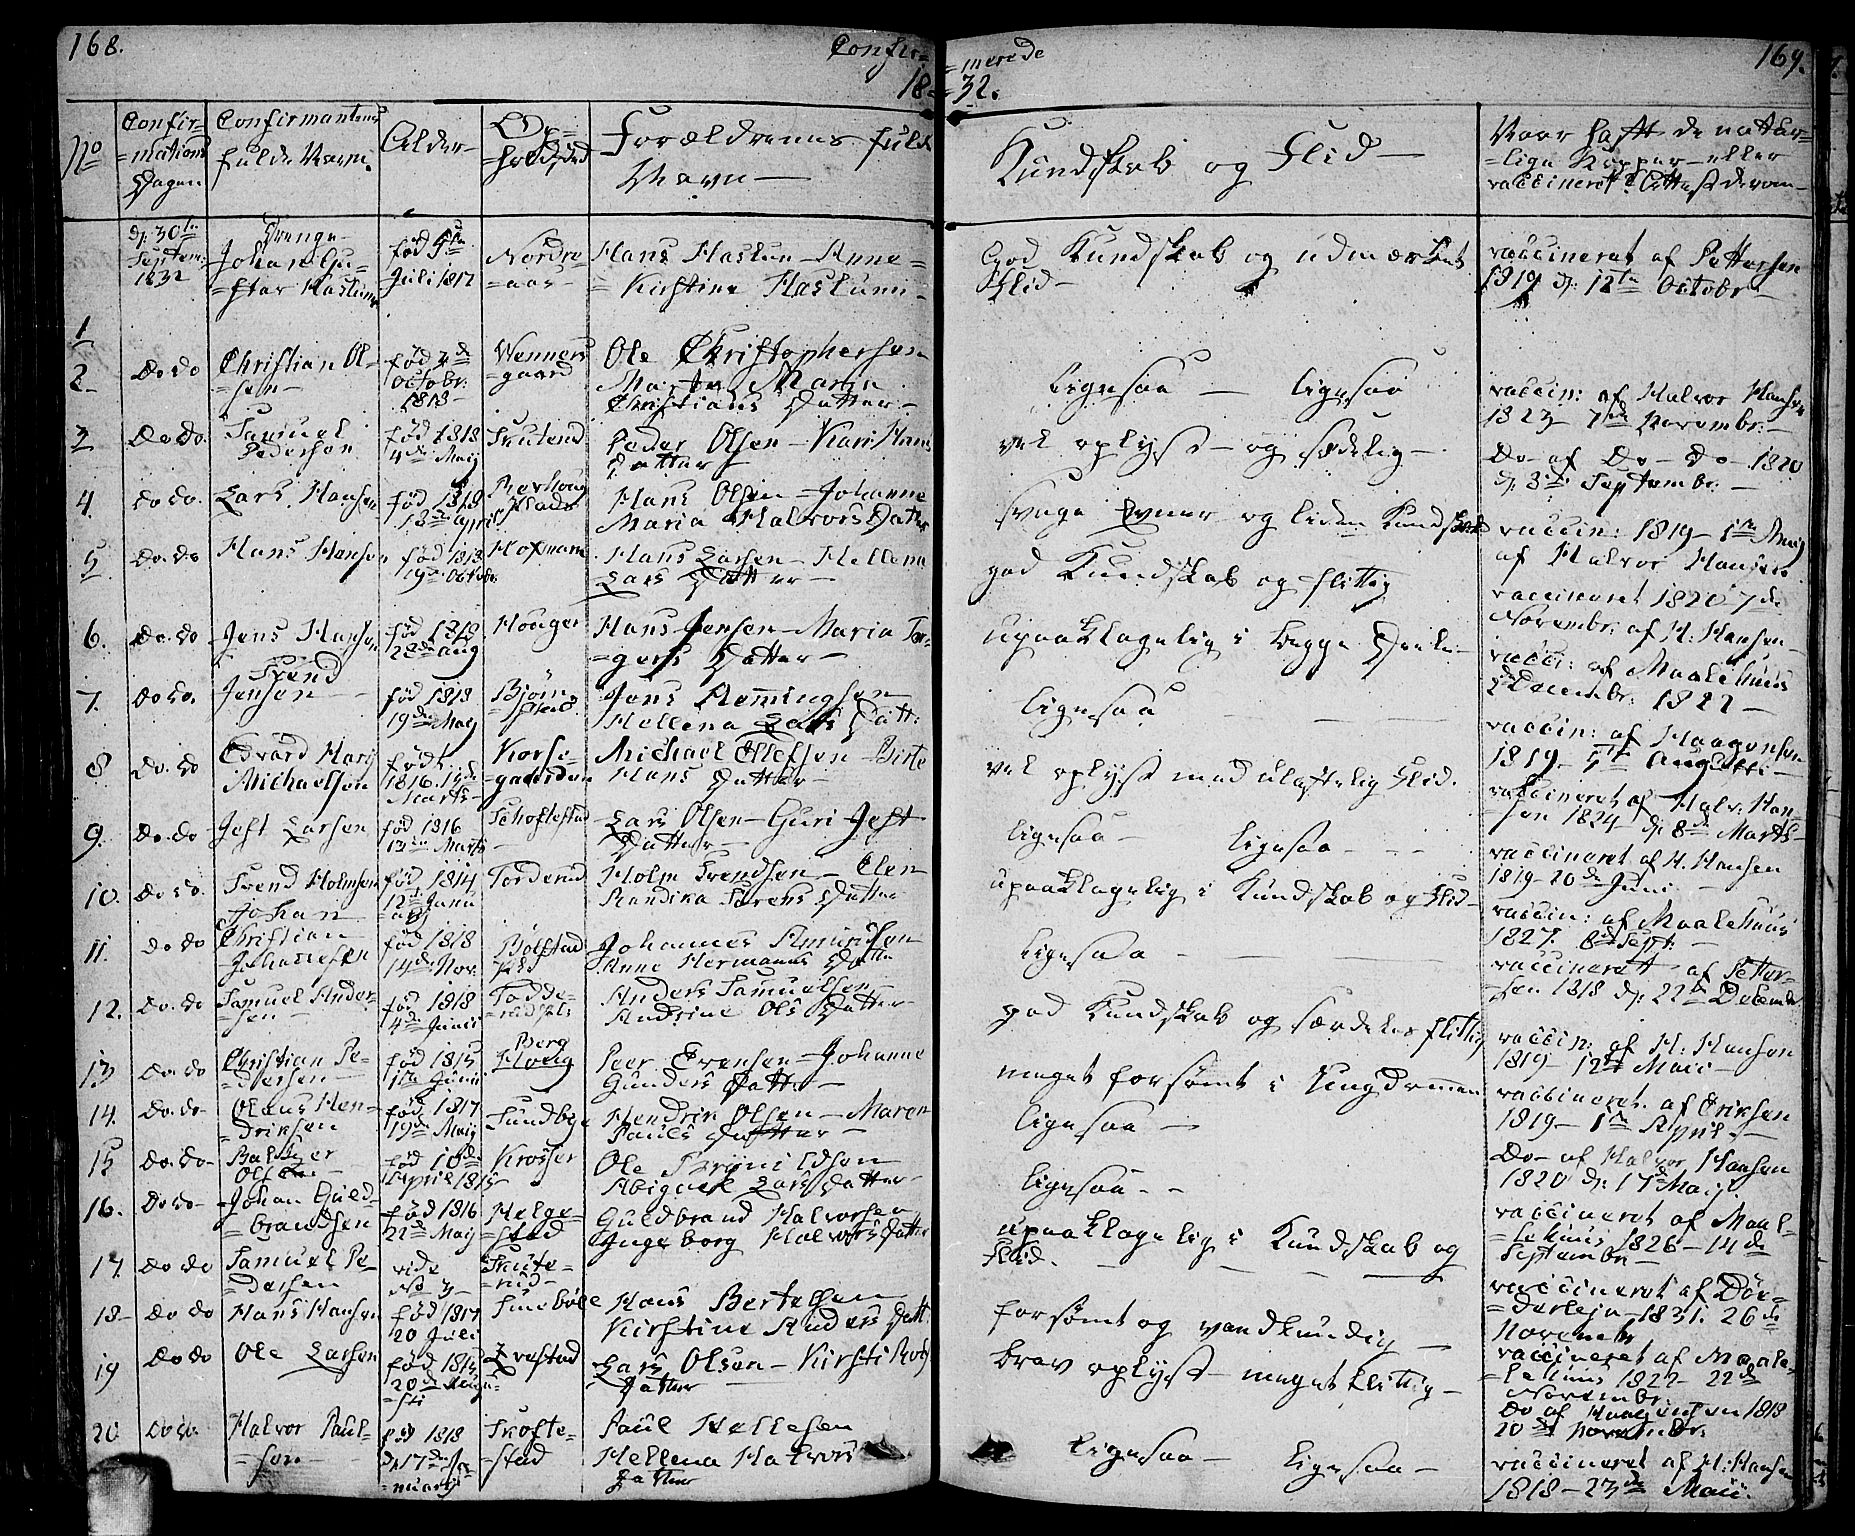 168.
Confir=
=merede
169.
18=
=32.
No
Confir=
=mations
Dagen
Confirmantens
fulde Navn.
Alder
Op=
=holdsted
Forældrenes fulde
Navn —
Kundskab og Flid —
Naar haft de natur=
=lige Kopper — eller
vaccineret? Attest derom —
1
d: 30te
Septem:
1832
Drenge
Johan Gu=
=stav Haslum
født 5te
Juli 1817
Nordre
=aas —
Hans Haslum — Anne=
= Kirstine Haslum —
God Kundskab og udmærket
Flid —
vaccineret af Pettersen
1819 d: 12te Octobr —
2
Do Do
Christian Ol=
=sen —
født
Octobr.
1818 —
Wenners
=gaard
Ole Christophersen
Marte Maria
Christians Datter —
ligesaa — ligesaa
vaccin: af Halvor Hansen
1823 7de Novembr. —
3
Do Do.
Samuel
Pedersen
født 1818
4de Maij
Peder Olsen — Kari Hans
Datter —
vel oplyst — og sædelig —
Do af Do — Do — 1820
d: 3die Septembr. —
4.
do do.
Lars Hansen
født 1818
April
Hans Olsen — Johanne
Maria Halvors Datter
svage Evner og liden Kundskab
vaccin: 1819 — 1te Maij
af Halvor Hansen
5
do. do
Hans Hansen
født 1818
19de Octobr
Hofmare
Hans Larsen — Hellena
Lars Datter —
god Kundskab og flittig
vaccineret 1820 7de
Novembr. af H: Hansen —
6.
do. do
Jens Hansen
født 1818
28de Aug
Houger
Hans Jensen — Maria Tor=
=gers Datter —
upaaklagelig i begge Deele —
vacci: af Maalehuus
Decembr. 1822 —
7.
do do.
Svend
Jensen —
født 1818
19de Maij
Jens Flemingsen
Hellena Lars Datt:
ligesaa — — —
vaccin: af Haagensen
1819 — 5te Augusti —
8
do. do
Edvard Mary
Michaelsen
født
1816. 14de
Marts —
Korse=
=gaarden
Michael Ellefsen — Birte
Hans Datter —
vel oplyst med ulastelig Flid.
vaccineret af Halv: Han=
=sen 1824 — d: 8de Marts —
9.
do. do
Jeft Larsen
født 1816
13de Marts
Schoftestad
Lars Olsen — Guri Jeft
Datter —
ligesaa — ligesaa — —
vaccineret af H. Hansen
1819 — 20de Juni —
10.
do do.
Svend Holmsen
født 1814
12te Janu
Torderud
Holm Svendsen — Elen
Randina Sørens Datter
upaaklagelig i Kundskab og Flid —
vaccin: af Maalehuus
1827. 8de Sept. —
11.
do do
Johan
Christian
Johannesen
født 1818
14de Nov.
Bølstad
Johannes Amundsen
Anne Hermanns Datter
ligesaa — — —
vaccineret af Petter=
=sen 1818 d: 22de Decembr
12.
do. do
Samuel Ander=
=sen —
født 1818
4de Junii
Anders Samuelsen
Andrine Ols Datter —
god Kundskab og særdeles flittig
vaccin: af H: Hansen
1819 — 12te Maii —
13
do. do
Christian Pe=
=dersen —
født 1815
1te Junii
Berg
Houg
Peer Evensen — Johanne
Gunders Datter —
meget forsømt i Ungdommen
vaccineret af Eriksen
1819 — 1te April. —
14.
do. do —
Olaus Hen=
=driksen
født 1817
19de Maij
Sundbye
Hendrik Olsen — Maren
Pauls Datter —
ligesaa —
Do — af Halvor Hansen
1820 d: 17de Maij.
15
do. do —
Baltzer
Olsen —
født 10de
April 1815
Krosser
Ole Brynildsen
Abigael Lars Datter —
ligesaa — —
vaccineret af Maal=
=lehuus 1826 — 14de
Septembr —
16.
do do —
Johan Guld=
=brandsen
født 1816
22de Maij
Helge=
=stad
Guldbrand Halvorsen
Ingeborg Halvors Datter
upaaklagelig i Kundskab og
Flid. — — —
17.
do do
Samuel Pe=
=dersen
vide
No 3 —
Skute=
=rud —
vaccineret af Dør=
=derlejn — 1831. 26de
Novembr
18 —
do do
Hans Hansen
født 1817
20 Juli
Finebøle
Hans Bertelsen
Kirstine Anders Datt
forsømt og vankundig —
vaccineret af Maale=
=lehuus 1822 — 22de
Novembr.
19
do do
Ole Larsen
født 1815
20de Augu=
=sti
Lars Olsen — Kirsti Rolf
Datter —
brav oplyst — meget flittig —
Do af Haagensen 1818
20de Novembr.
20
do do.
Halvor Paul=
=sen —
født 1818
d: 17de Ja=
=nuarij
Skofte=
=stad
Paul Hellesen
Hellena Halvors
Datter
ligesaa — ligesaa —
vaccineret af H: Hansen
1818 — 23de Maii.